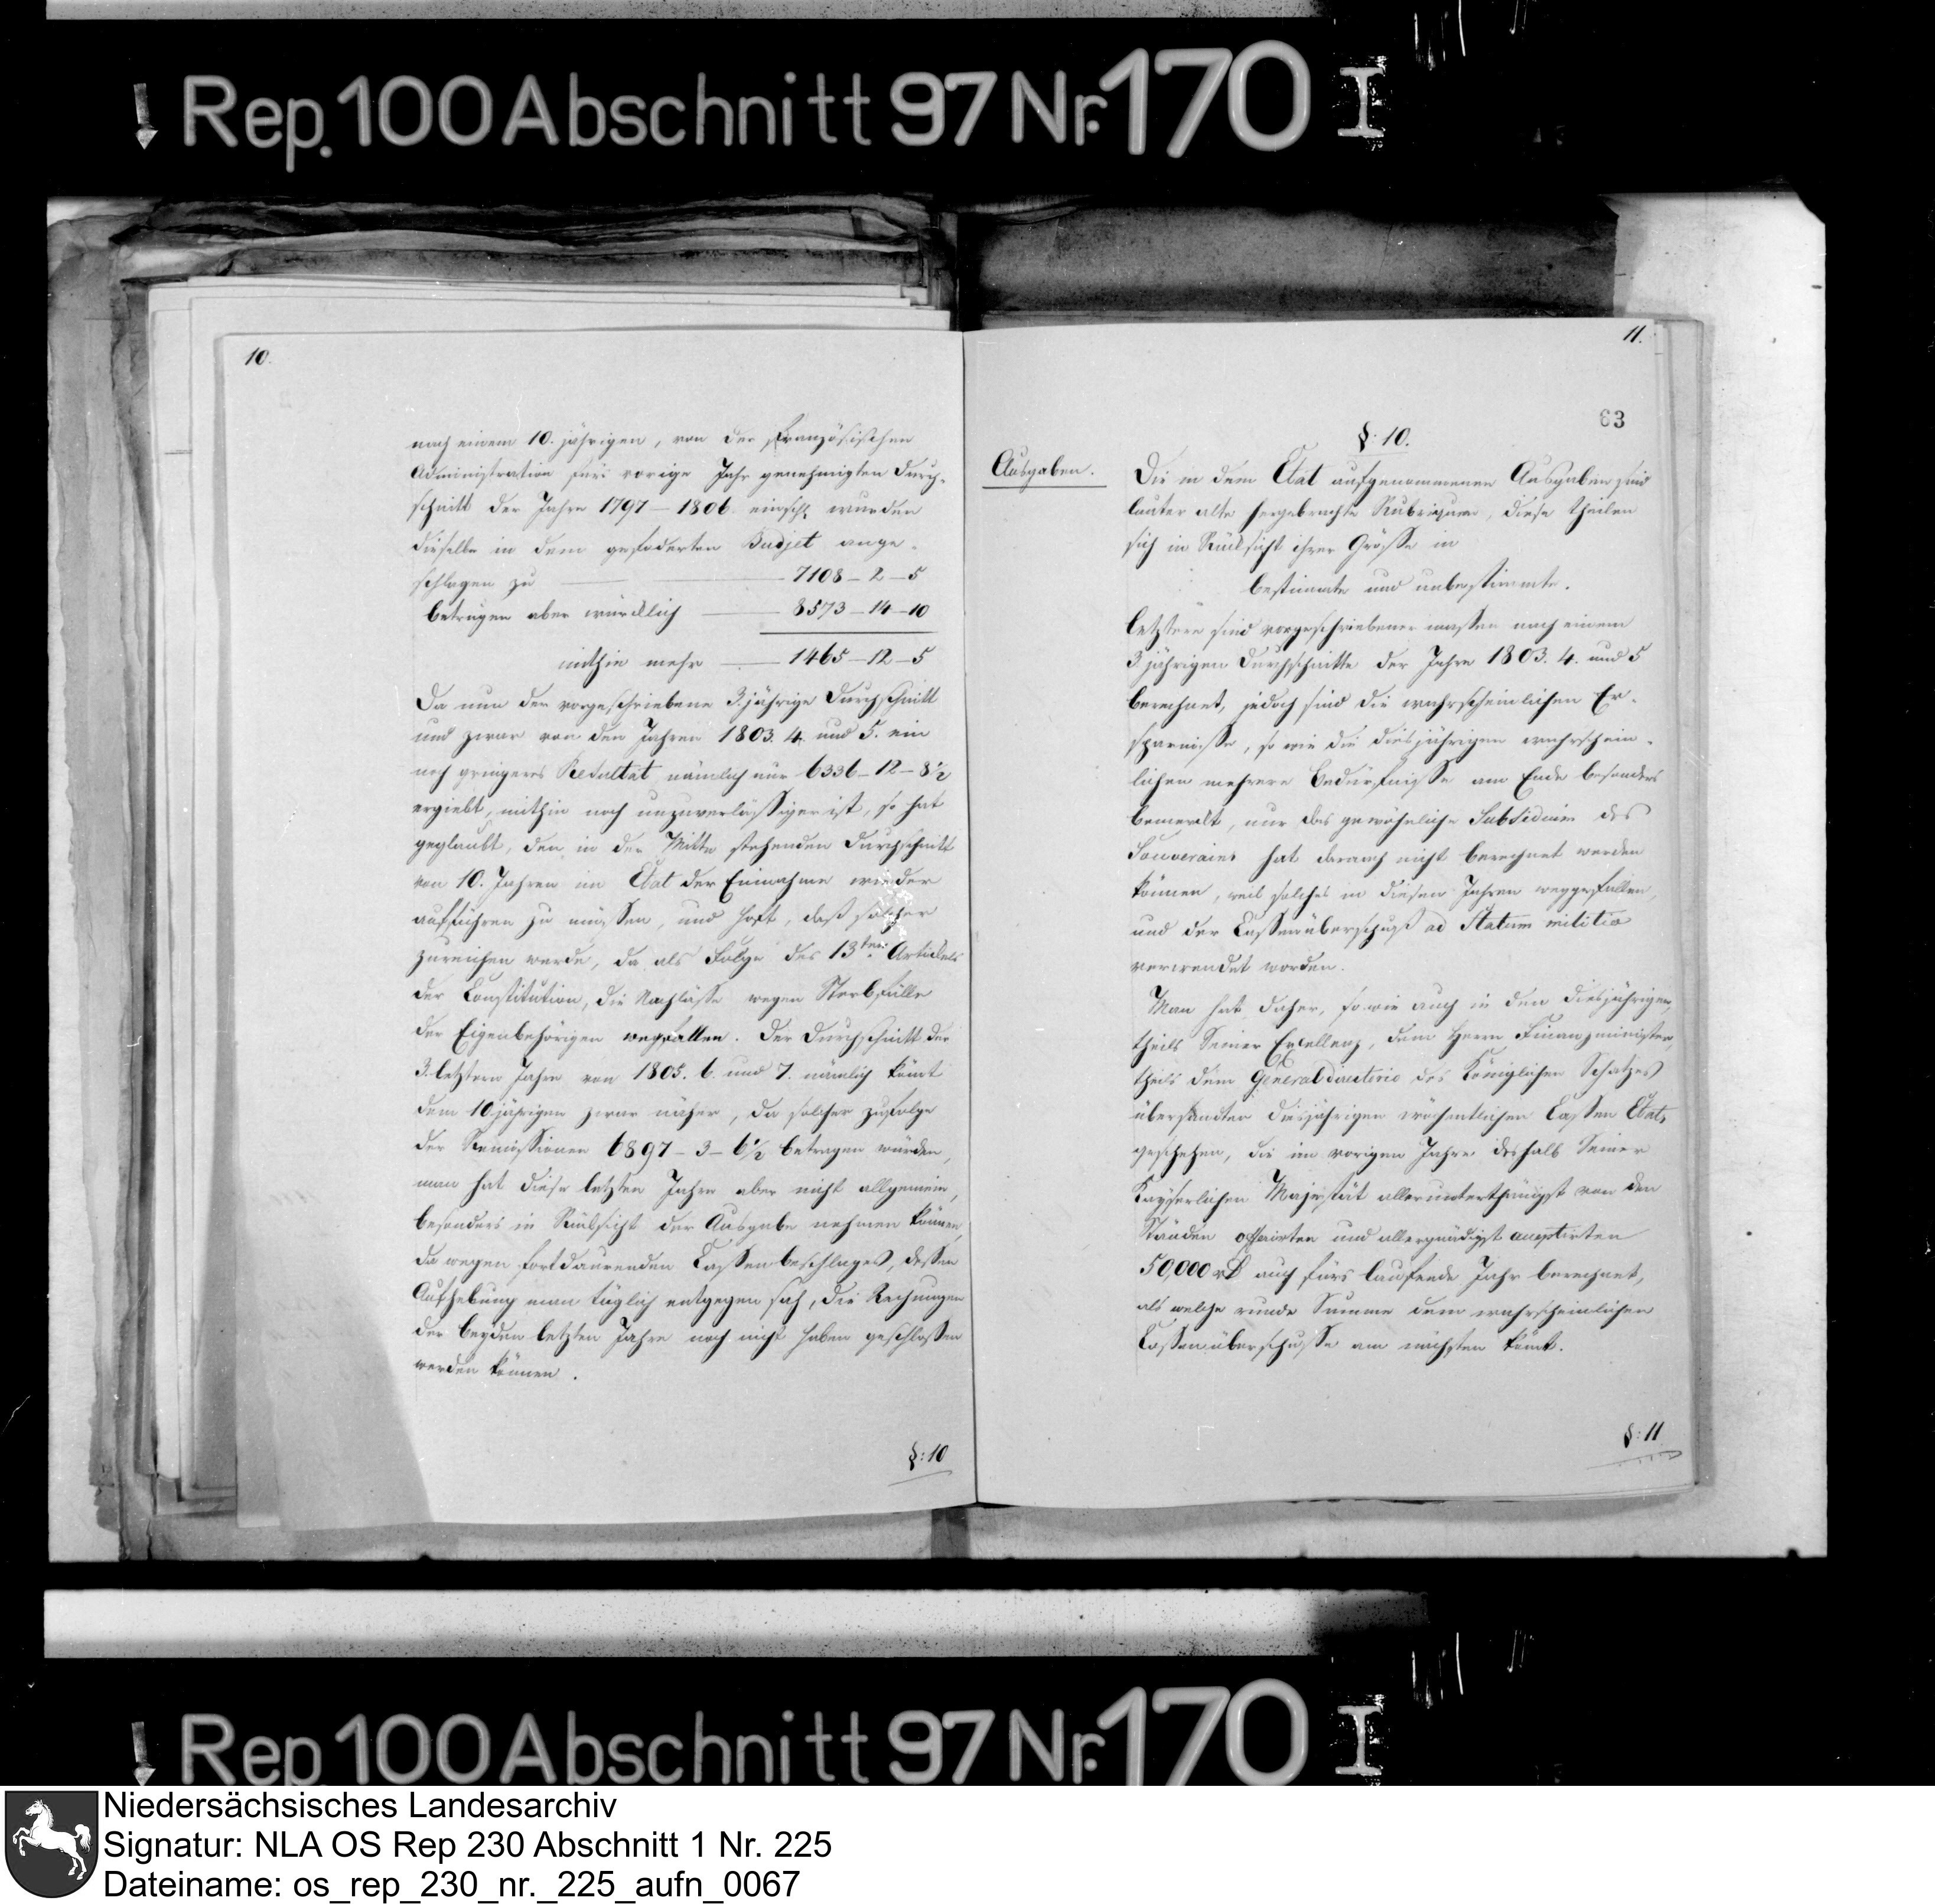 Rep. 100 Abschnitt 97 Nr. 170 I
10.
nach einem 10. jährigen, von der französischen
Administration fürs vorige Jahr genehmigten Durch-
schnitt der Jahre 1797 – 1806 einschl. wurden
dieselbe in dem gefoderten Budjet ange-
schlagen zu — 7108 – 2 – 5
betrugen aber würcklich — 8573 – 14 – 10
mithin mehr — 1465 – 12 – 5
Da nun der vorgeschriebene 3. jährige Durchschnitt
und zwar von den Jahren 1803. 4. und 5. ein
noch geringeres Resultat nämlich nur 6336 – 12 – 8½
ergiebt, mithin noch unzuverlässiger ist, so hat
geglaubt, den in der Mitte stehenden Durchschnitt
von 10. Jahren im Etat der Einnahme wieder
aufführen zu müssen, und hoft, daß solcher
zureichen werde, da als Folge des 13ten Artickels
der Constitution, die Nachlässe wegen Sterbfälle
der Eigenbehörigen wegfallen. Der Durchschnitt der
3. letztern Jahre von 1805. 6. und 7. nämlich kömt
dem 10 jährigen zwar näher, da solcher zufolge
der Remissionen 6897 – 3 – 6½ betragen würden,
man hat diese letzten Jahre aber nicht allgemein,
besonders in Rücksicht der Ausgabe nehmen können,
da wegen fortdaurenden Cassenbeschlages, dessen
Aufhebung man täglich entgegen sah, die Rechnungen
der beyden letzten Jahre noch nicht haben geschlossen
werden können.
§: 10
11.
63
§: 10.
Ausgaben.
Die in dem Etat aufgenommenen Ausgaben sind
lauter alte hergebrachte Rubriquen, diese theilen
sich in Rücksicht ihrer Grösse in
bestimmte und unbestimmte.
letztere sind vorgeschriebener massen nach einem
3. jährigen Durchschnitte der Jahre 1803. 4. und 5
berechnet, jedoch sind die wahrscheinlichen Er-
sparnisse, so wie die diesjährigen wahrschein-
lichen mehrere Bedürfnisse am Ende besonders
bemerckt, nur das gewöhnliche Subsidium des
Souverains hat darnach nicht berechnet werden
können, weil solches in diesen Jahren weggefallen,
und der Cassenüberschuß ad Statum militiæ
verwendet worden.
Man hat daher, so wie auch in den diesjährigen,
theils Seiner Excellenz, dem Herrn Finanzminister,
theils dem Generaldirectorio des Königlichen Schatzes
übersandten diesjährigen wöchentlichen Cassen Etats
geschehen, die im vorigen Jahre deshalb Seiner
Kayserlichen Majestät allerunterthänigst von den
Ständen offerirten und allergnädigst acceptirten
50,000 rD auch fürs laufende Jahr berechnet,
als welche runde Summe dem wahrscheinlichen
Cassenüberschusse am nächsten kömt.
§: 11
Rep. 100 Abschnitt 97 Nr. 170 I
Niedersächsisches Landesarchiv
Signatur: NLA OS Rep 230 Abschnitt 1 Nr. 225
Dateiname: os_rep_230_nr._225_aufn_0067